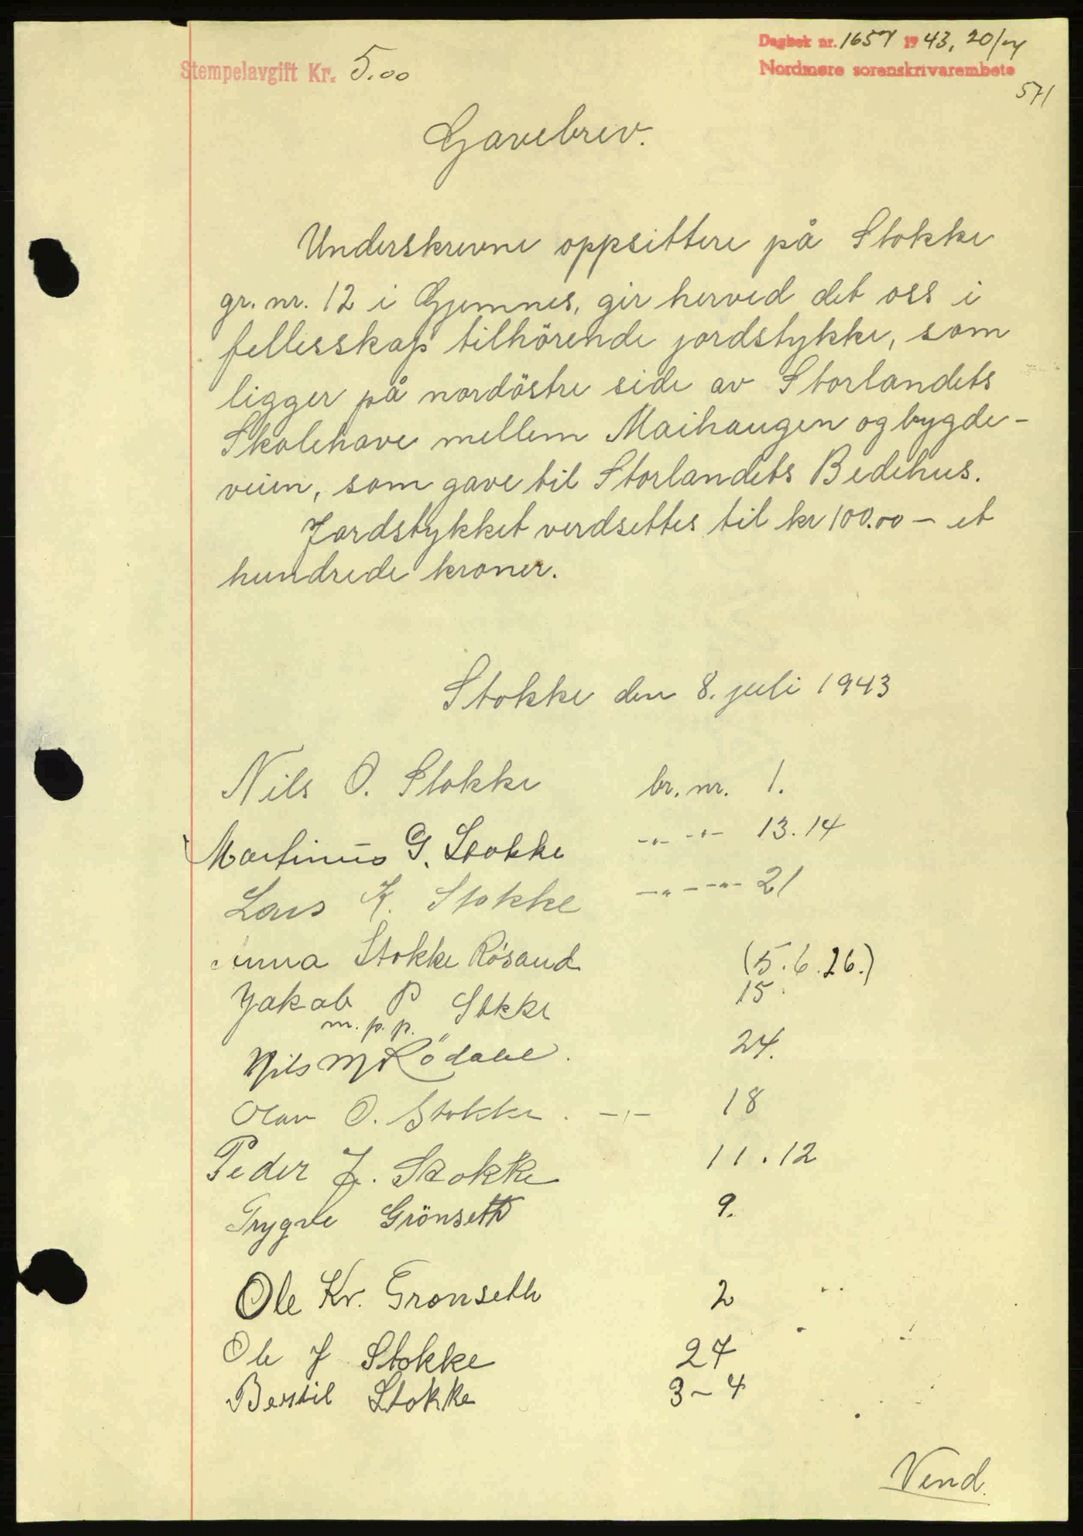 Stempelavgift Kr. 5.00
Dagbok nr. 1657 1943, 20/7
Nordmøre sorenskrivarembete
571
Gavebrev.
Underskrevne oppsittere på Stokke
gr. nr. 12 i Gjemnes, gir herved det oss i
fellesskap tilhörende jordstykke, som
ligger på nordöstre side av Storlandets
Skolehave mellem Maihaugen og bygde-
veien, som gave til Storlandets Bedehus.
Jordstykket verdsettes til kr 100.00 - et
hundrede kroner.
Stokke den 8. juli 1943
Nils O. Stokke br. nr. 1.
Martinus G. Stokke -"- -"- 13.14
Lars K. Stokke -"- -"- 21
Anna Stokke Rösand (5.6.26.)
Jakob P Stokke 15.
m. p. p.
Nils M Rödahl. 24.
Olav O. Stokke. -"- 18
Peder J. Stokke 11.12
Trygve Grönseth 9.
Ole Kr. Gronseth 2
Ole J Stokke 27
Bertil Stokke 3-4
Vend.